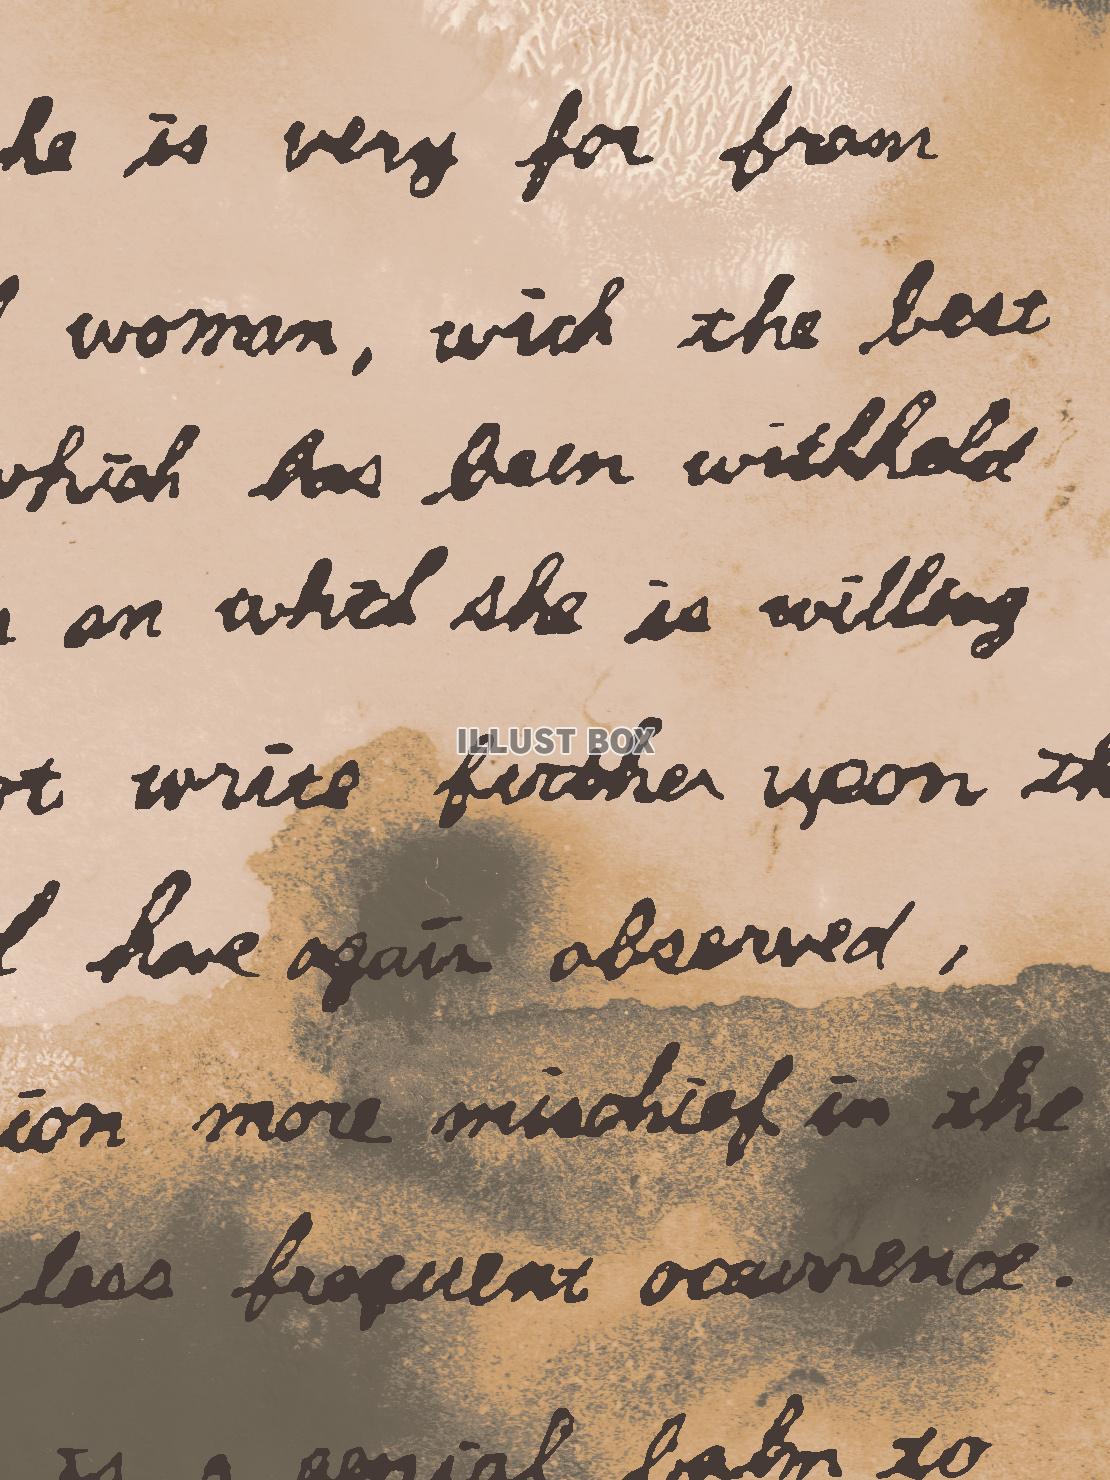 he is very for from
woman, with the best
which has been withheld
an which she is willing
ot write further upon th
ILLUST BOX
have again observed,
ion more mischief in the
less frequent occurrence.
is a genial balm to